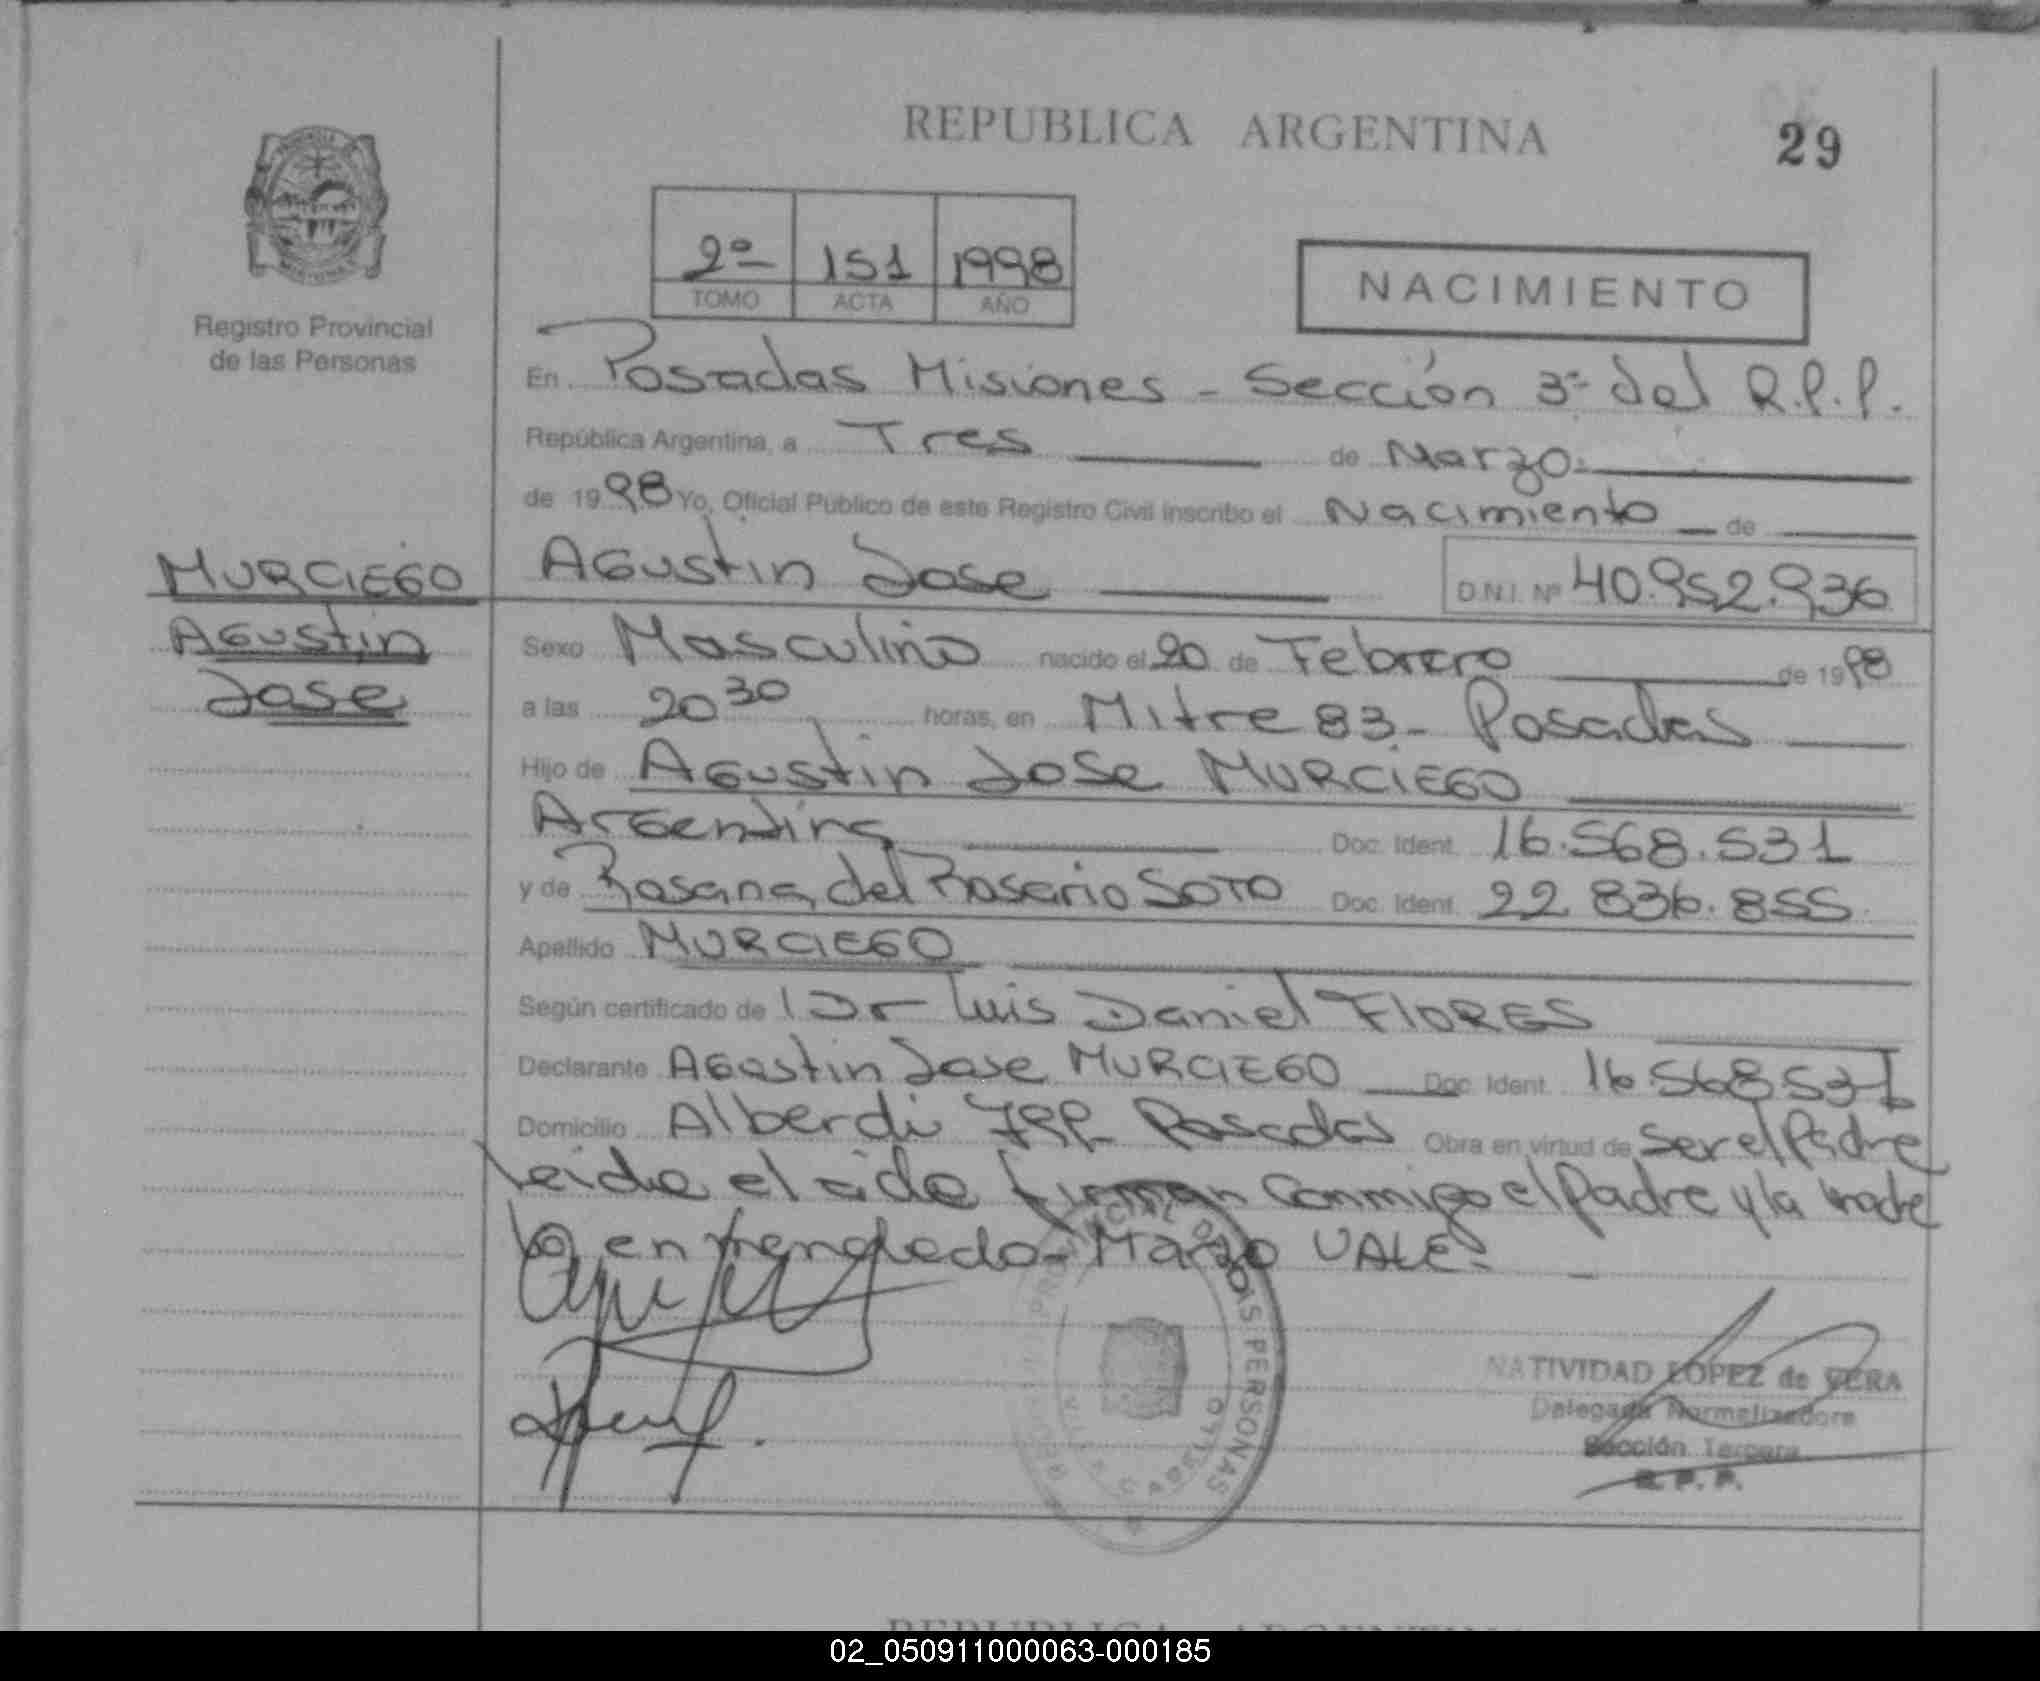 REPUBLICA ARGENTINA
29
2º 151 1998
TOMO ACTA AÑO
NACIMIENTO
Registro Provincial
de las Personas
En Posadas Misiones - Sección 3ª del R.P.P.
República Argentina, a Tres de Marzo
de 1998 Yo, Oficial Público de este Registro Civil inscribo el Nacimiento de
MURCIEGO
Agustin
Jose
Agustin Jose D.N.I. Nº 40.952.936
Sexo Masculino nacido el 20 de Febrero de 1998
a las 20 30 horas, en Mitre 83 - Posadas
Hijo de Agustin Jose MURCIEGO
Argentina Doc. Ident. 16.568.531
y de Rosana del Rosario SOTO Doc. Ident. 22.836.855
Apellido MURCIEGO
Según certificado de Dr Luis Daniel FLORES
Declarante Agustin Jose MURCIEGO Doc. Ident. 16.568.531
Domicilio Alberdi Posadas Obra en virtud de ser el Padre
Leida el firman conmigo el Padre y la madre
lo entrenglado - Marzo VALE -
NATIVIDAD LOPEZ de VERA
Delegada Normalizadora
Sección Tercera
R. P. P.
REPUBLICA ARGENTINA
02_050911000063-000185